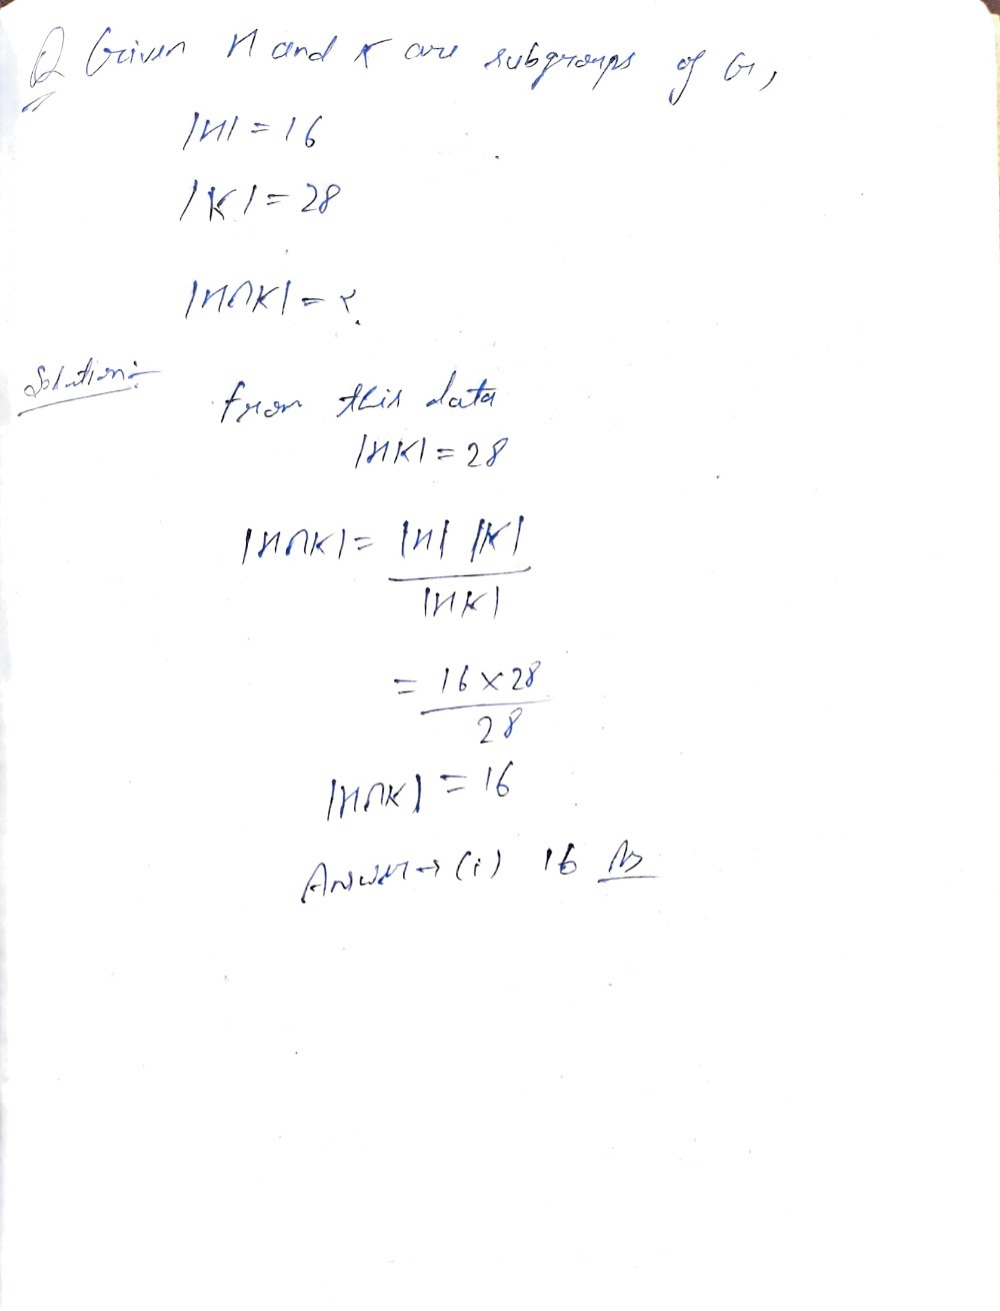 Q Given H and K are subgroups of G,
|H| = 16
|K| = 28
|H∩K| = ?
Solution:-
from this data
|HK| = 28
|H∩K| = |H| |K|
|HK|
= 16 × 28
28
|H∩K| = 16
Answer → (i) 16 As